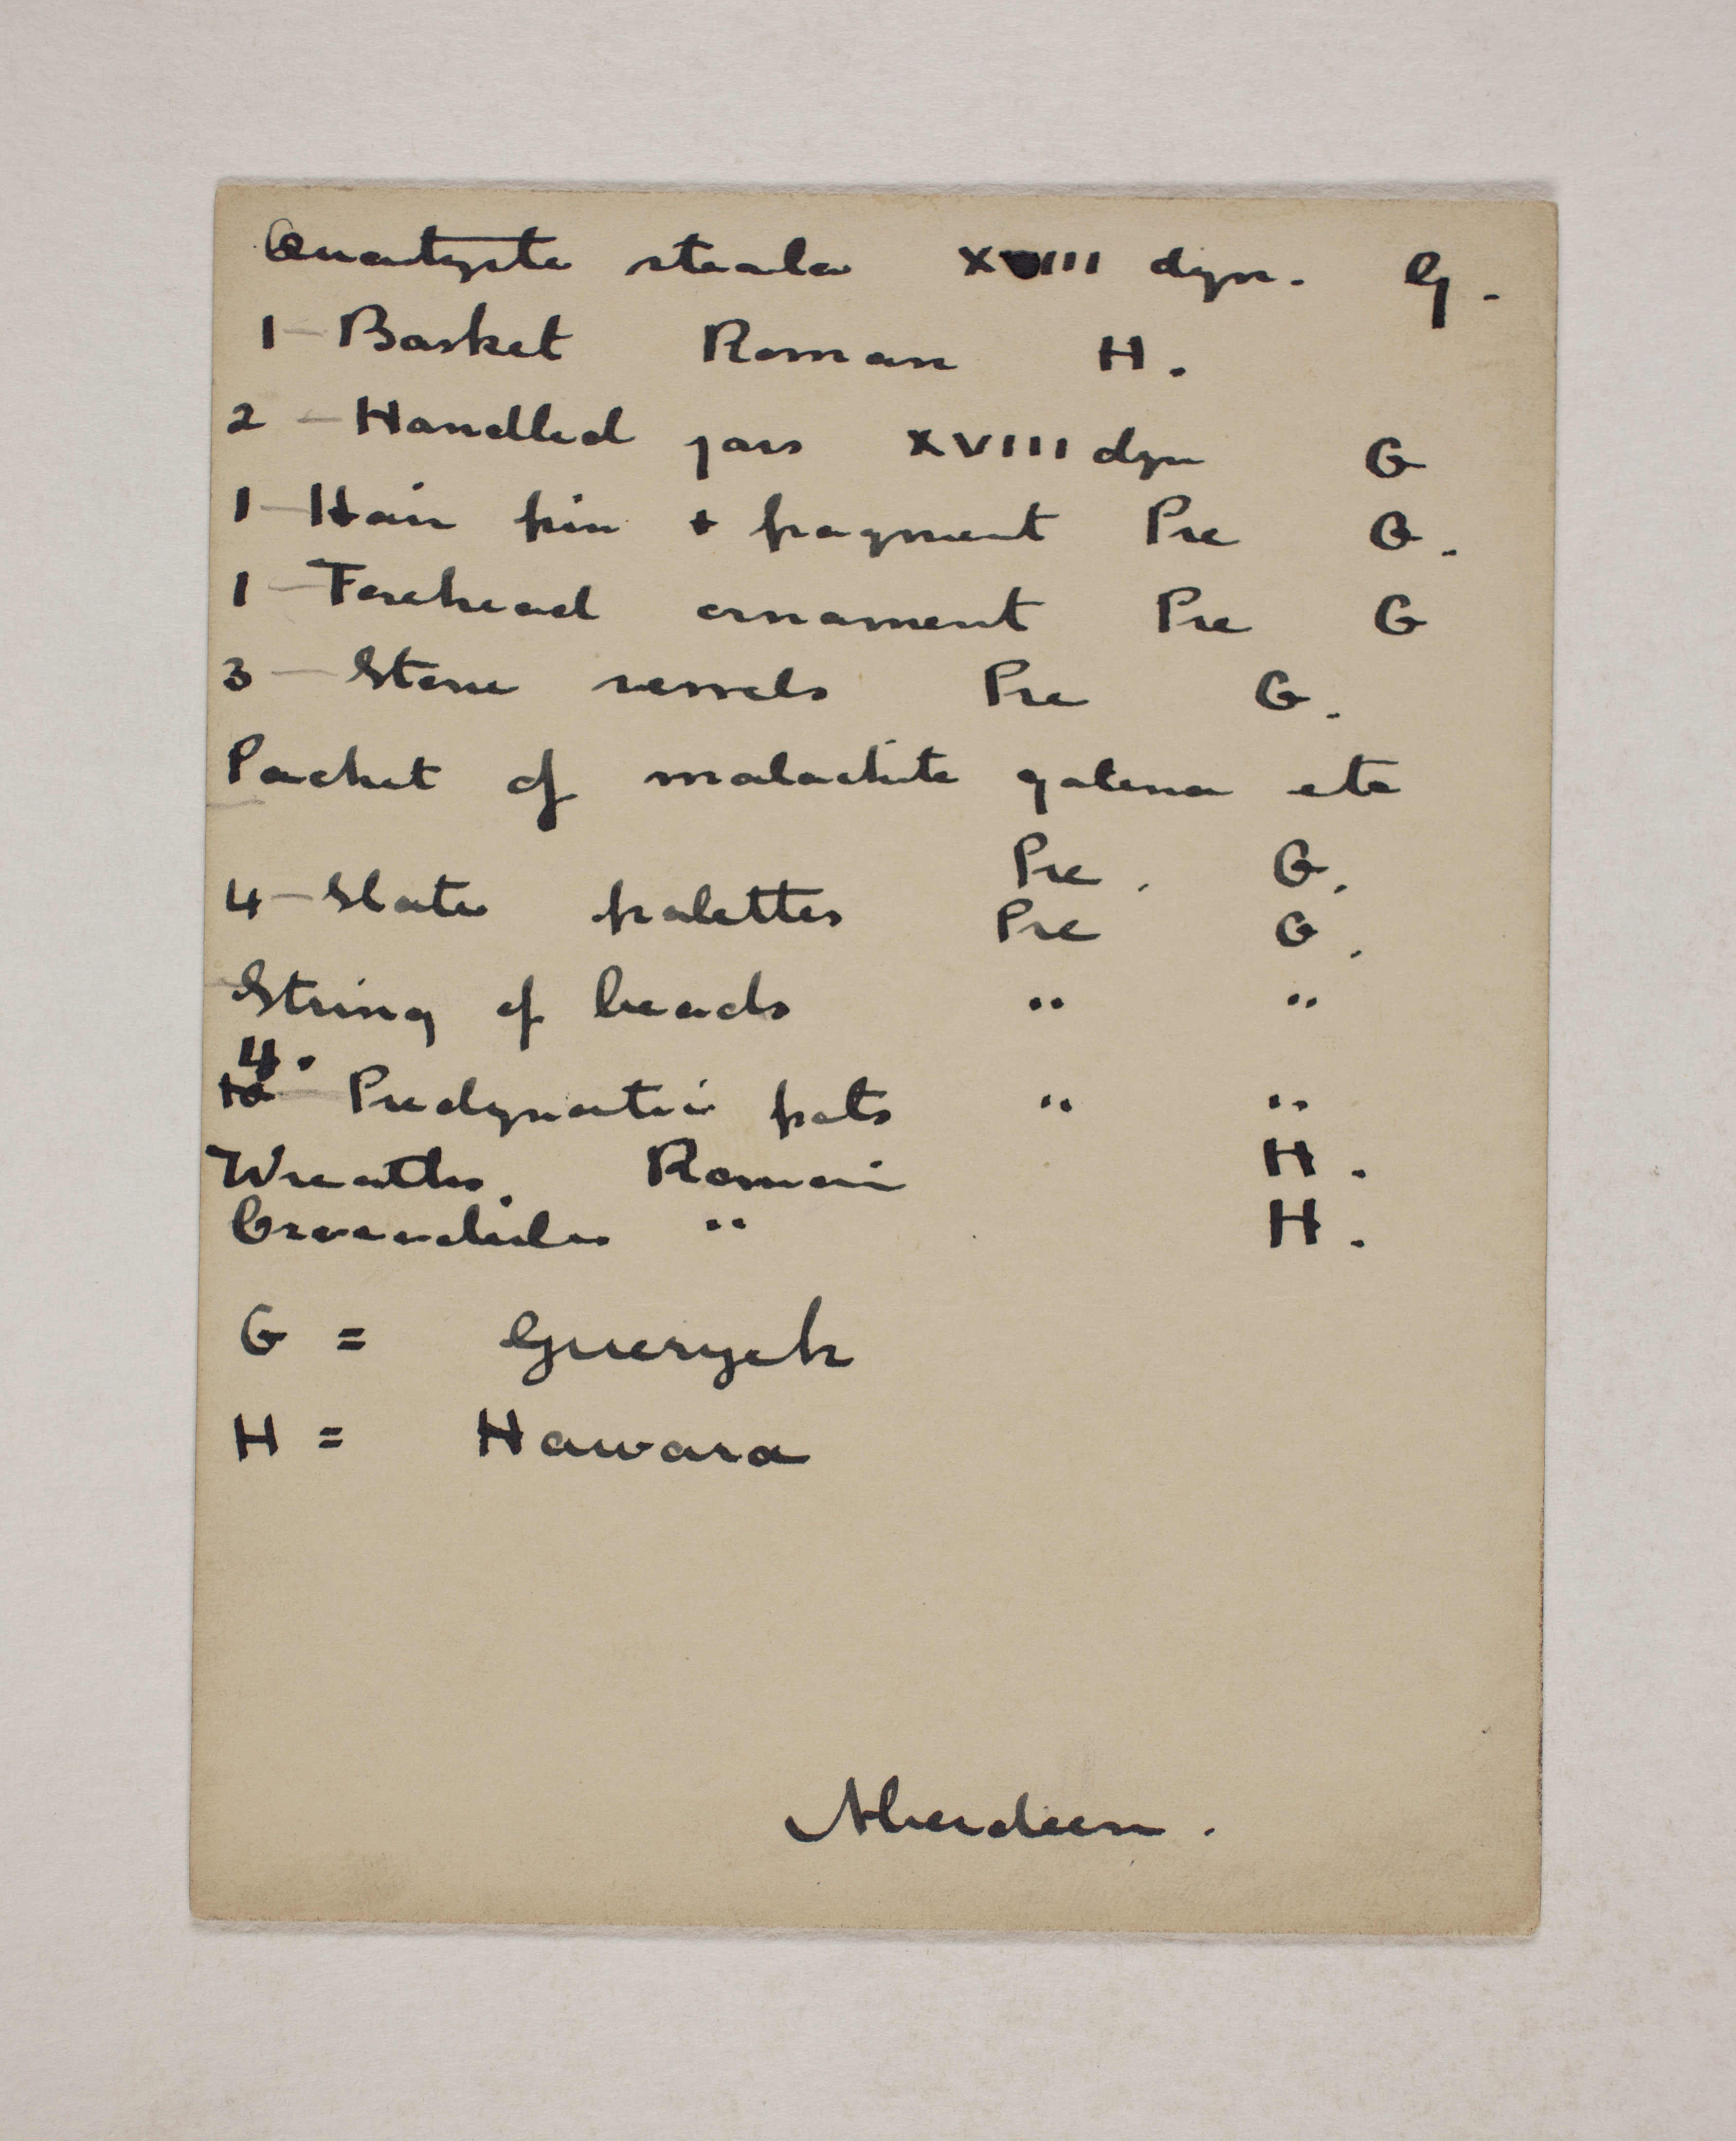 Quartzite steala XVIII dyn. G.
1 - Basket Roman H.
2 - Handled jars XVIII dyn G
1 - Hair pin + fragment Pre G.
1 - Forehead ornament Pre G
3 - Stone vessels Pre G.
Packet of malachite galena etc
Pre. G.
4 - Slate palettes Pre G.
String of beads " "
4.
Predynastic pots " "
Wreaths. Roman H.
" H.
G = Guerzeh
H = Hawara
Aberdeen.